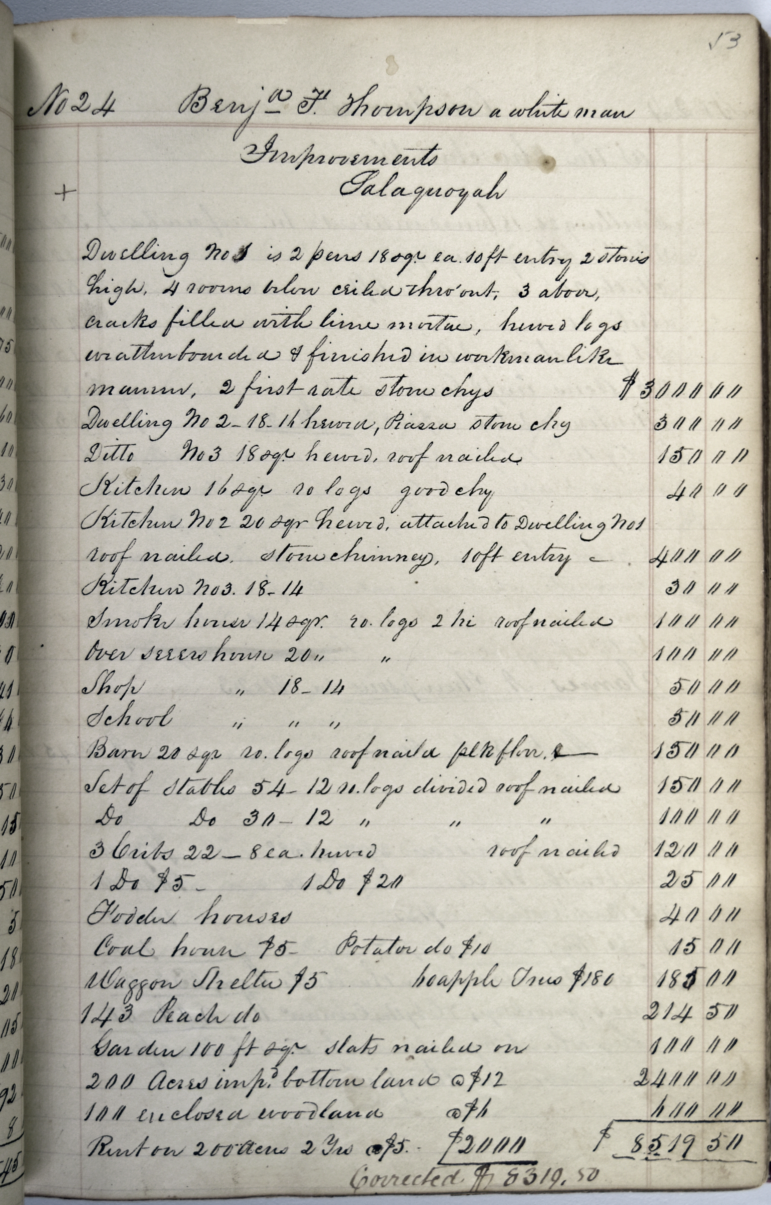 53
No 24 Benja F. Thompson a white man
Improvements
+ Salaquoyah
Dwelling No 1 is 2 pens 18 sqr ea. 10ft entry 2 stories
high, 4 rooms below ceiled thro'out, 3 above,
cracks filled with lime mortar, hewed logs
weatherboarded & finished in workmanlike
manner, 2 first rate stone chys $ 3000 00
Dwelling No 2 - 18-16 hewed, Piazza stone chy 300 00
Ditto No 3 18 sqr hewed, roof nailed 150 00
Kitchen 16 sqr ro logs good chy 40 00
Kitchen No 2 20 sqr hewed, attached to Dwelling No 1
roof nailed. stone chimney, 10ft entry - 400 00
Kitchen No 3. 18-14 30 00
Smoke house 14 sqr. ro. logs 2 hi roof nailed 100 00
Over seeers house 20 " " 100 00
Shop " 18-14 50 00
School " " " 50 00
Barn 20 sqr ro. logs roof nailed plk floor. 150 00
Set of stables 54-12 ro. logs divided roof nailed 150 00
Do Do 30-12 " " " 100 00
3 Cribs 22-8 ea. hewed roof nailed 120 00
1 Do $5- 1 Do $20 25 00
Fodder houses 40 00
Coal house $5- Potatoe do $10 15 00
Waggon Shelter $5 60 apple Trees $180 185 00
143 Peach do 214 50
Garden 100 ft sqr slats nailed on 100 00
200 Acres impd. bottom land @ $12 2400 00
100 enclosed woodland @ $6 600 00
Rent on 200 acres 2 Yrs @ $5. $2000 $ 8519 50
Corrected $ 8319.50